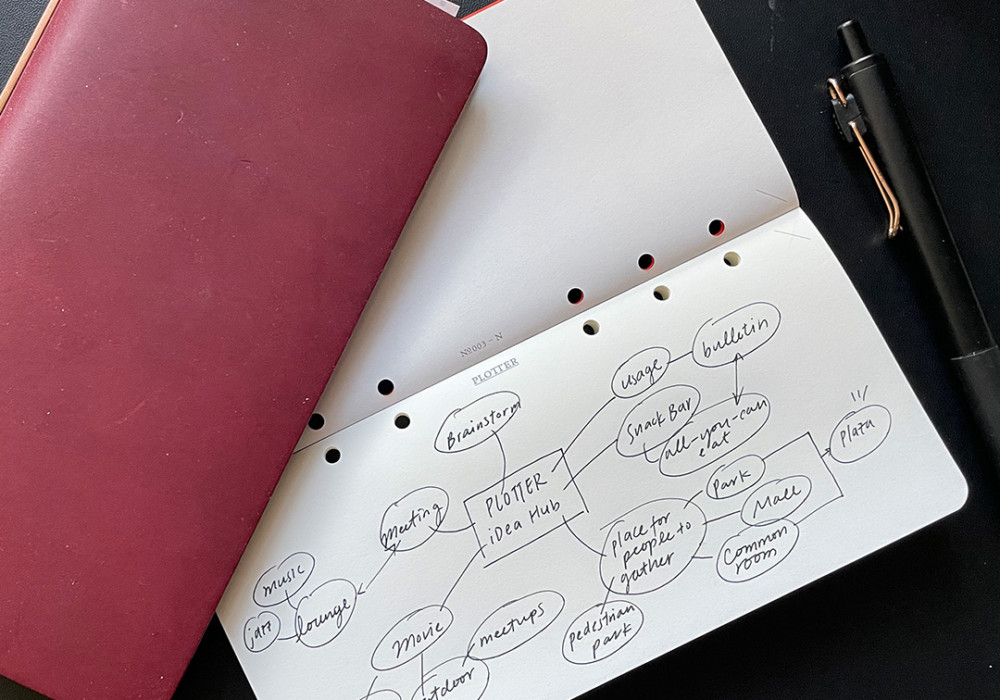 No 003 – N
PLOTTER
bulletin
usage
Brainstorm
Snack Bar
all-you-can
eat
plaza
PLOTTER
iDea Hub
park
Mall
Meeting
place for
people to
gather
Common
room
music
lounge
jazz
Movie
meetups
pedestrian
park